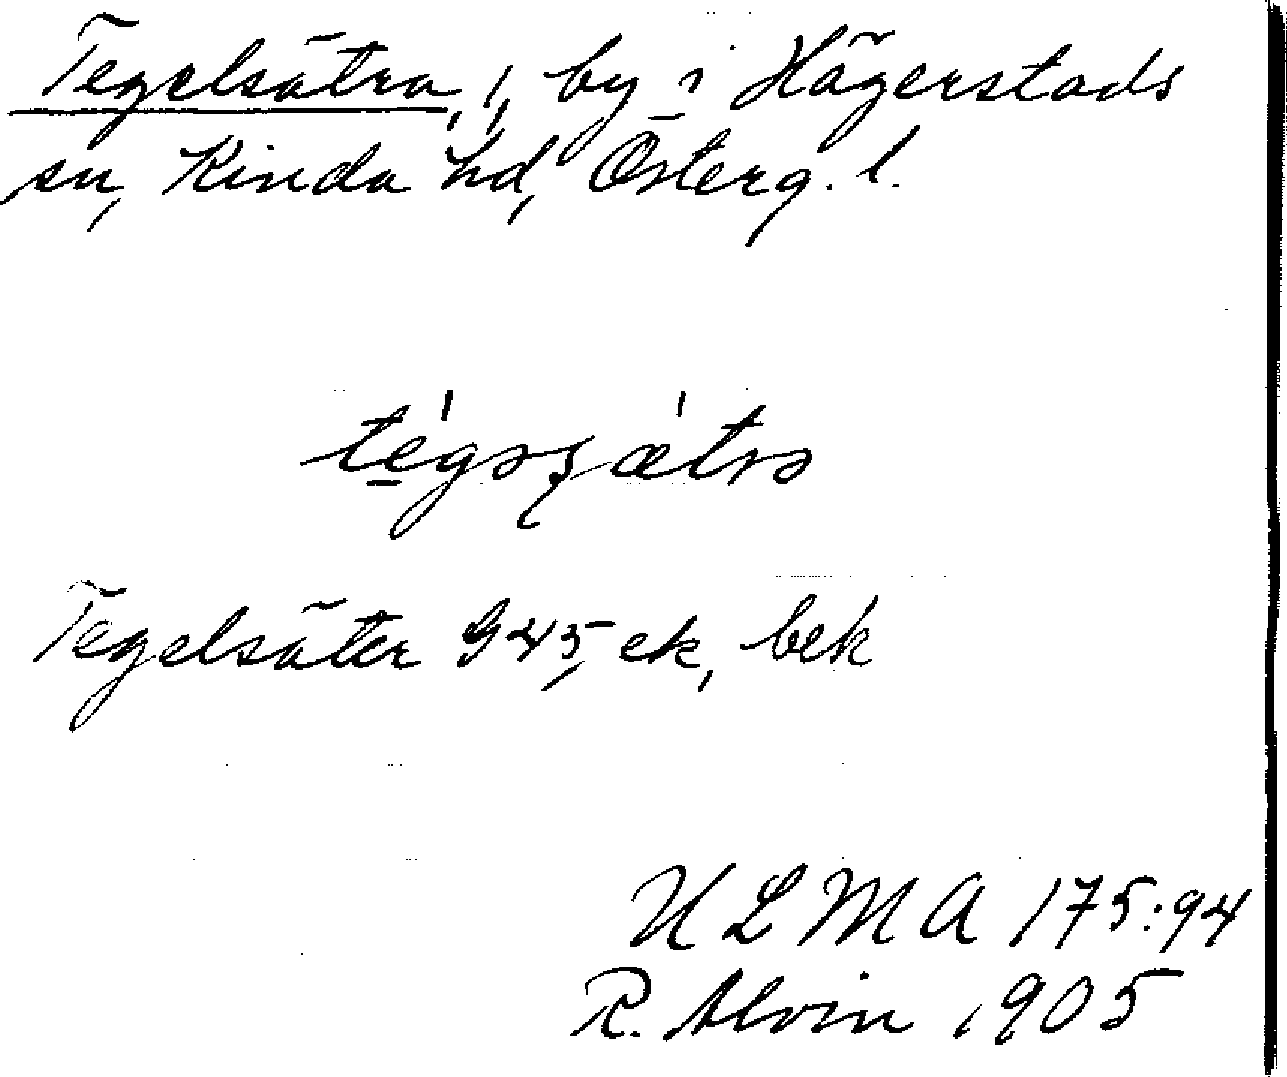 Tegelsätra, 1, by i Hägerstads
sn, Kinda hd, Österg. l.
tégəsætrə
Tegelsäter G45, ek, bek
ULMA 175:94
R. Alvin 1905